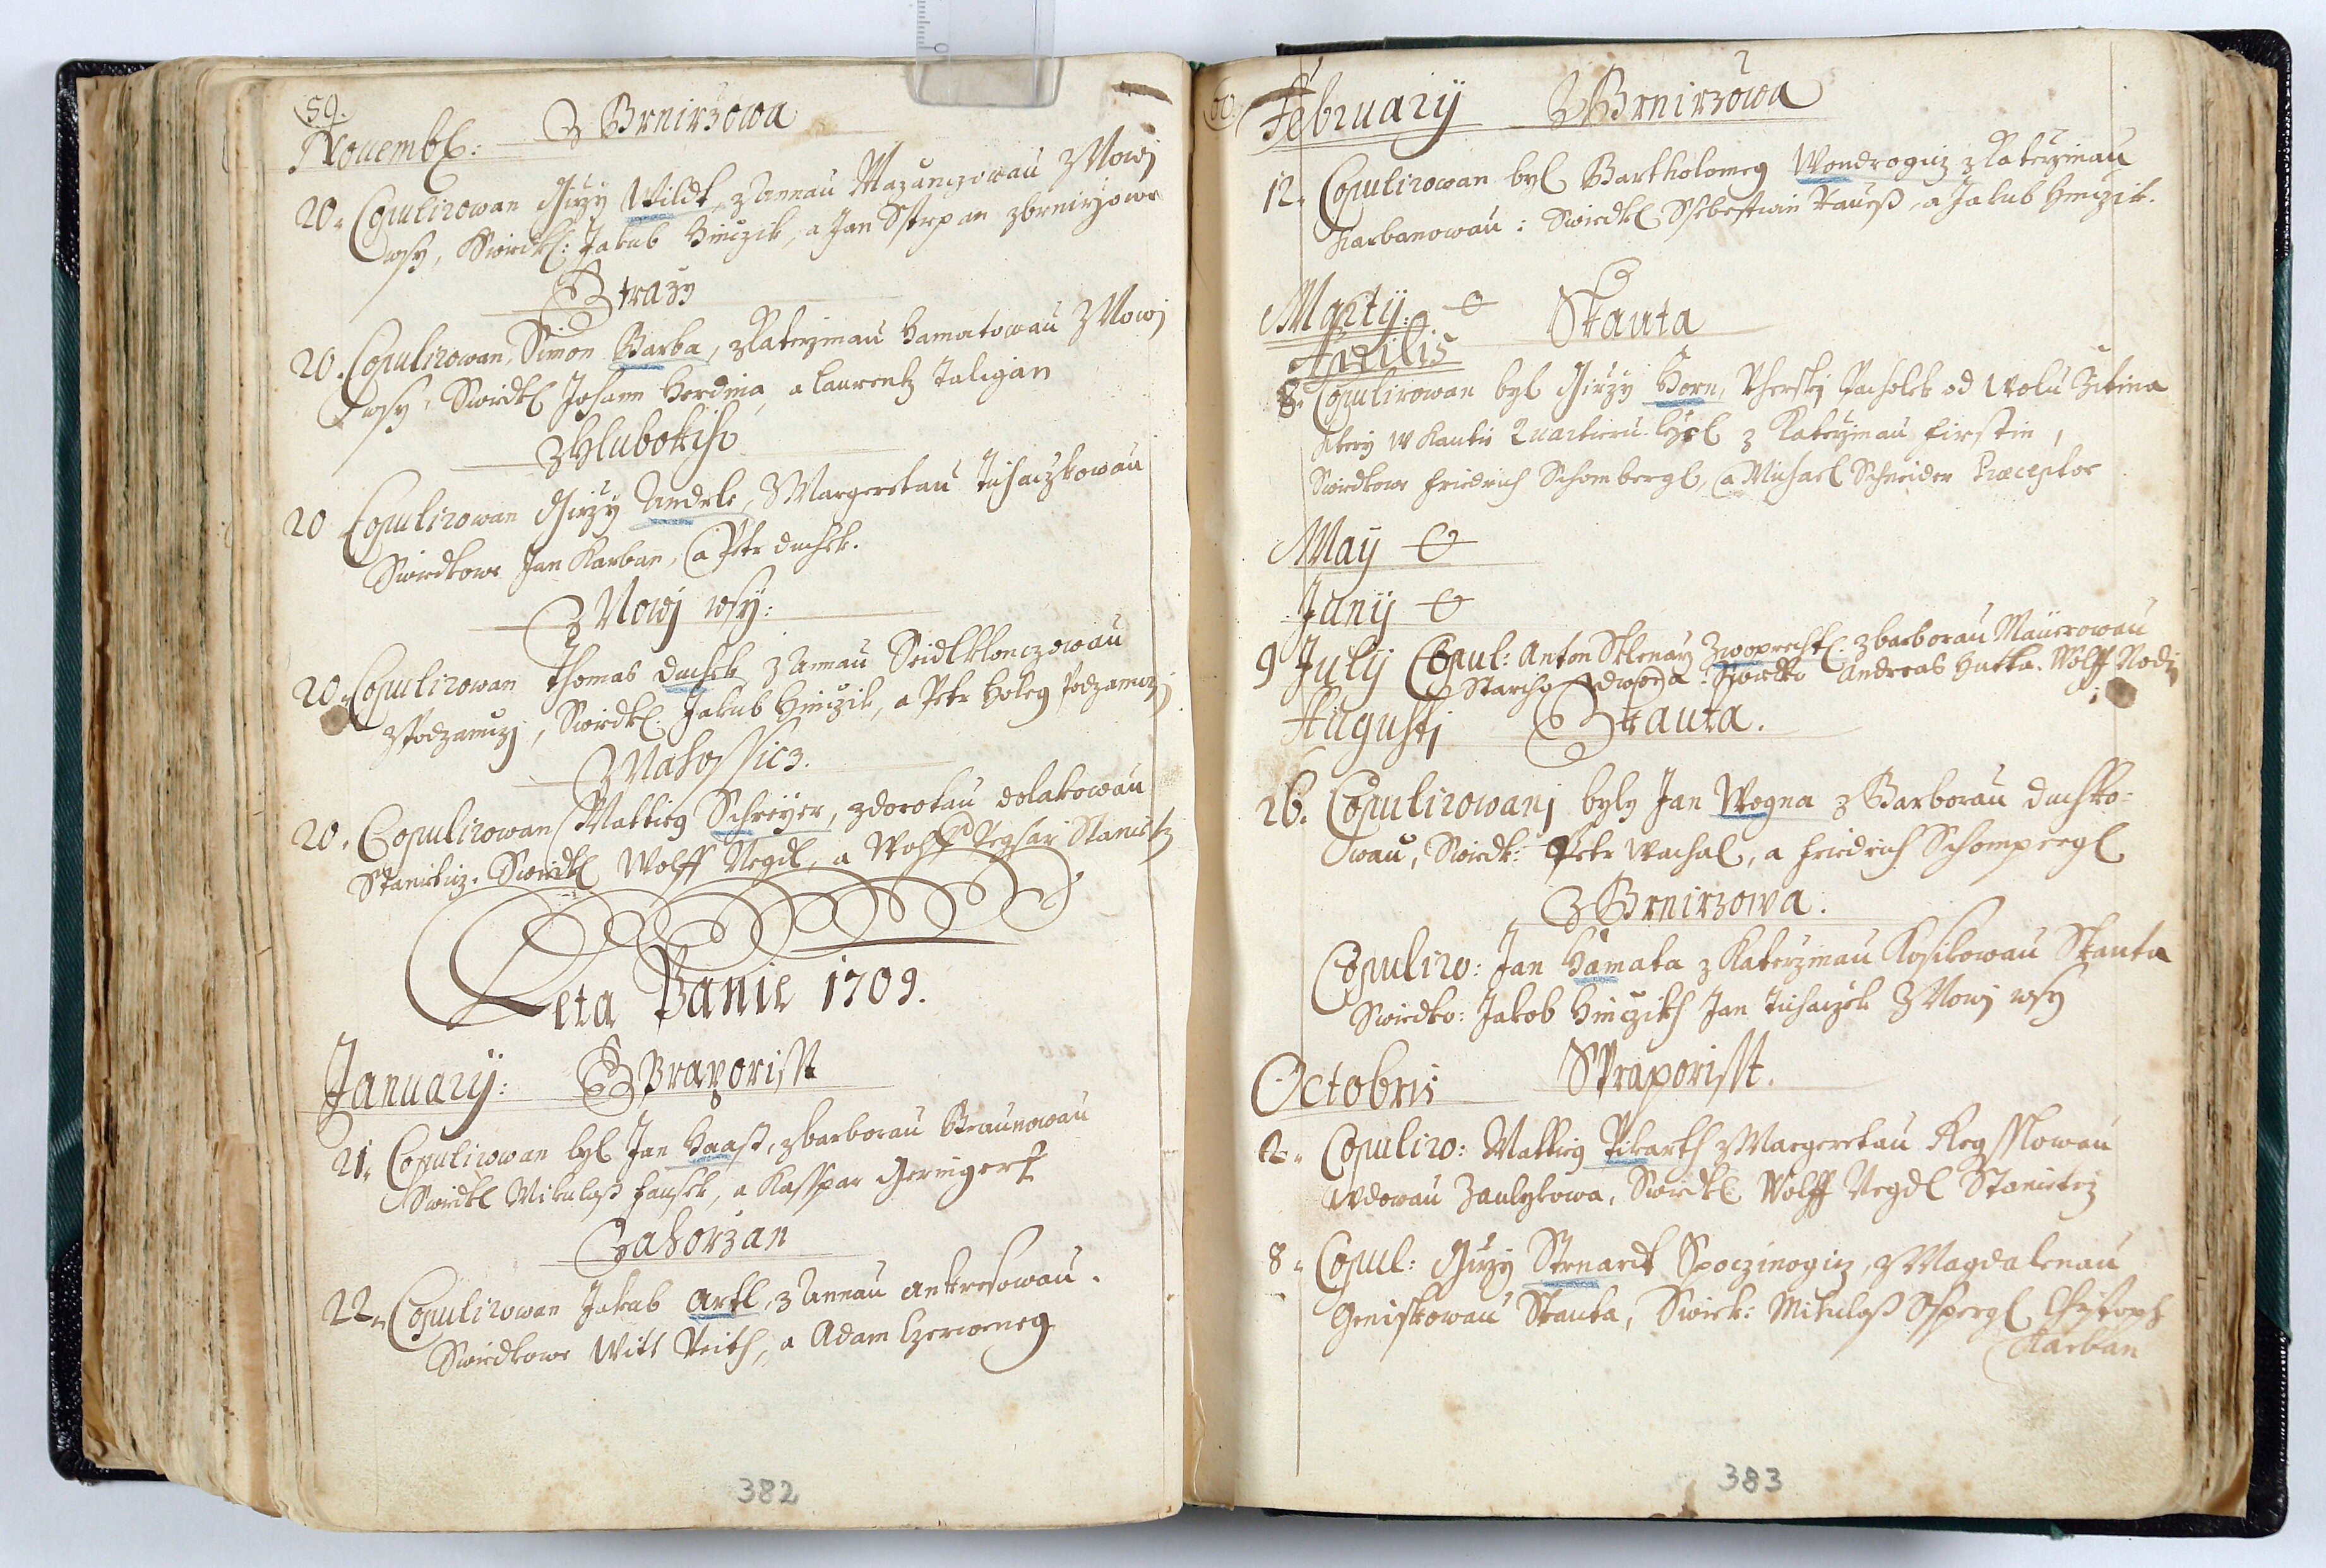 59.
Novembr: Z Brnirzowa
20. Copulirowan Girzy Wildt, z Annau Mazanczowau Z Nowj
wsy, Swiedkl: Jakub Hinczik, a Jan Sstepan z brnirzowa
Z trazy
20. Copulirowan Simon Barba, z Katerzinau Hamatowau Z Nowj
wsy, Swiedkl Johann Herdina, a Laurentz Taligan
Z Hlubokiho
20 Copulirowan Girzy Andrle, Z Margeretau Tichaczkowau
Swiedkowe Jan Karban, a Petr duchek.
Z Nowj wsy:
20. Copulirowan Thomas duchek z Annau Seidlklonczowau
z Podzamczj, Swiedkl. Jakub Hinczik, a Petr Holeg Podzamczj
Z Nahossicz.
20. Copulirowan Mattieg Schreyer, z dorotau dolakowau
Stanieticz. Swiedkl Wolff Negdl, a Wolff Pegsar Stanietz
Leta Panie 1709.
January: Z Praporisst
21. Copulirowan byl Jan Haass, z barborau Braunowau
Swiedkl Mikulass Hanssek, a Kasspar Geringert
Zahorzan
22. Copulirowan Jakub Artl, z Annau Antresowau.
Swiedkowe Witt Veith, a Adam Czerweneg
382
60.
February Z Brnirzowa
12. Copulirowan byl Bartholomeg Wondrogicz z Katerzinau
Karbanowau: Swiedkl Ssebestian Kauess, a Jakub Hinczik.
Martij. O Skauta
Aprilis
8. Copulirowan byl Girzy Horn, Vherskj Pacholek od Wolu Zitina
ktery w Kautie Quartieru byl z Katerzinau Firstin,
Swiedkowe Friedrich Schombergl, a Michael Schneider Præceptor
May O
Junij O
9 July Copul: Anton Sklenarz Zwoprechtl. z barborau Mäuerowau
Stariho dwora: Swiedko Andreas Hutka. Wolff Nodj
Augustj Z kauta.
26. Copulirowanj byly Jan Wogna z Barborau duchko=
wau, Swiedk: Petr Wachal, a Friedrich Schompergl
Z Brnirzowa.
Copuliro: Jan Hamata z Katerzinau Kosikowau Skauta
Swiedko: Jakob Hinczikh Jan Tichaczek Z Nowj wsy
Octobris S Praporisst.
2. Copuliro: Mattieg Pikarth z Margeretau Regsslowau
Wdowau Zaulykowa, Swiedkl. Wolff Negdl Stanieticz
8. Copul: Girzy Stenarek Spoczinogicz, z Magdalenau
Geniskowau Skauta, Swiek: Mikulass Ospergl Christoph
Karban
383